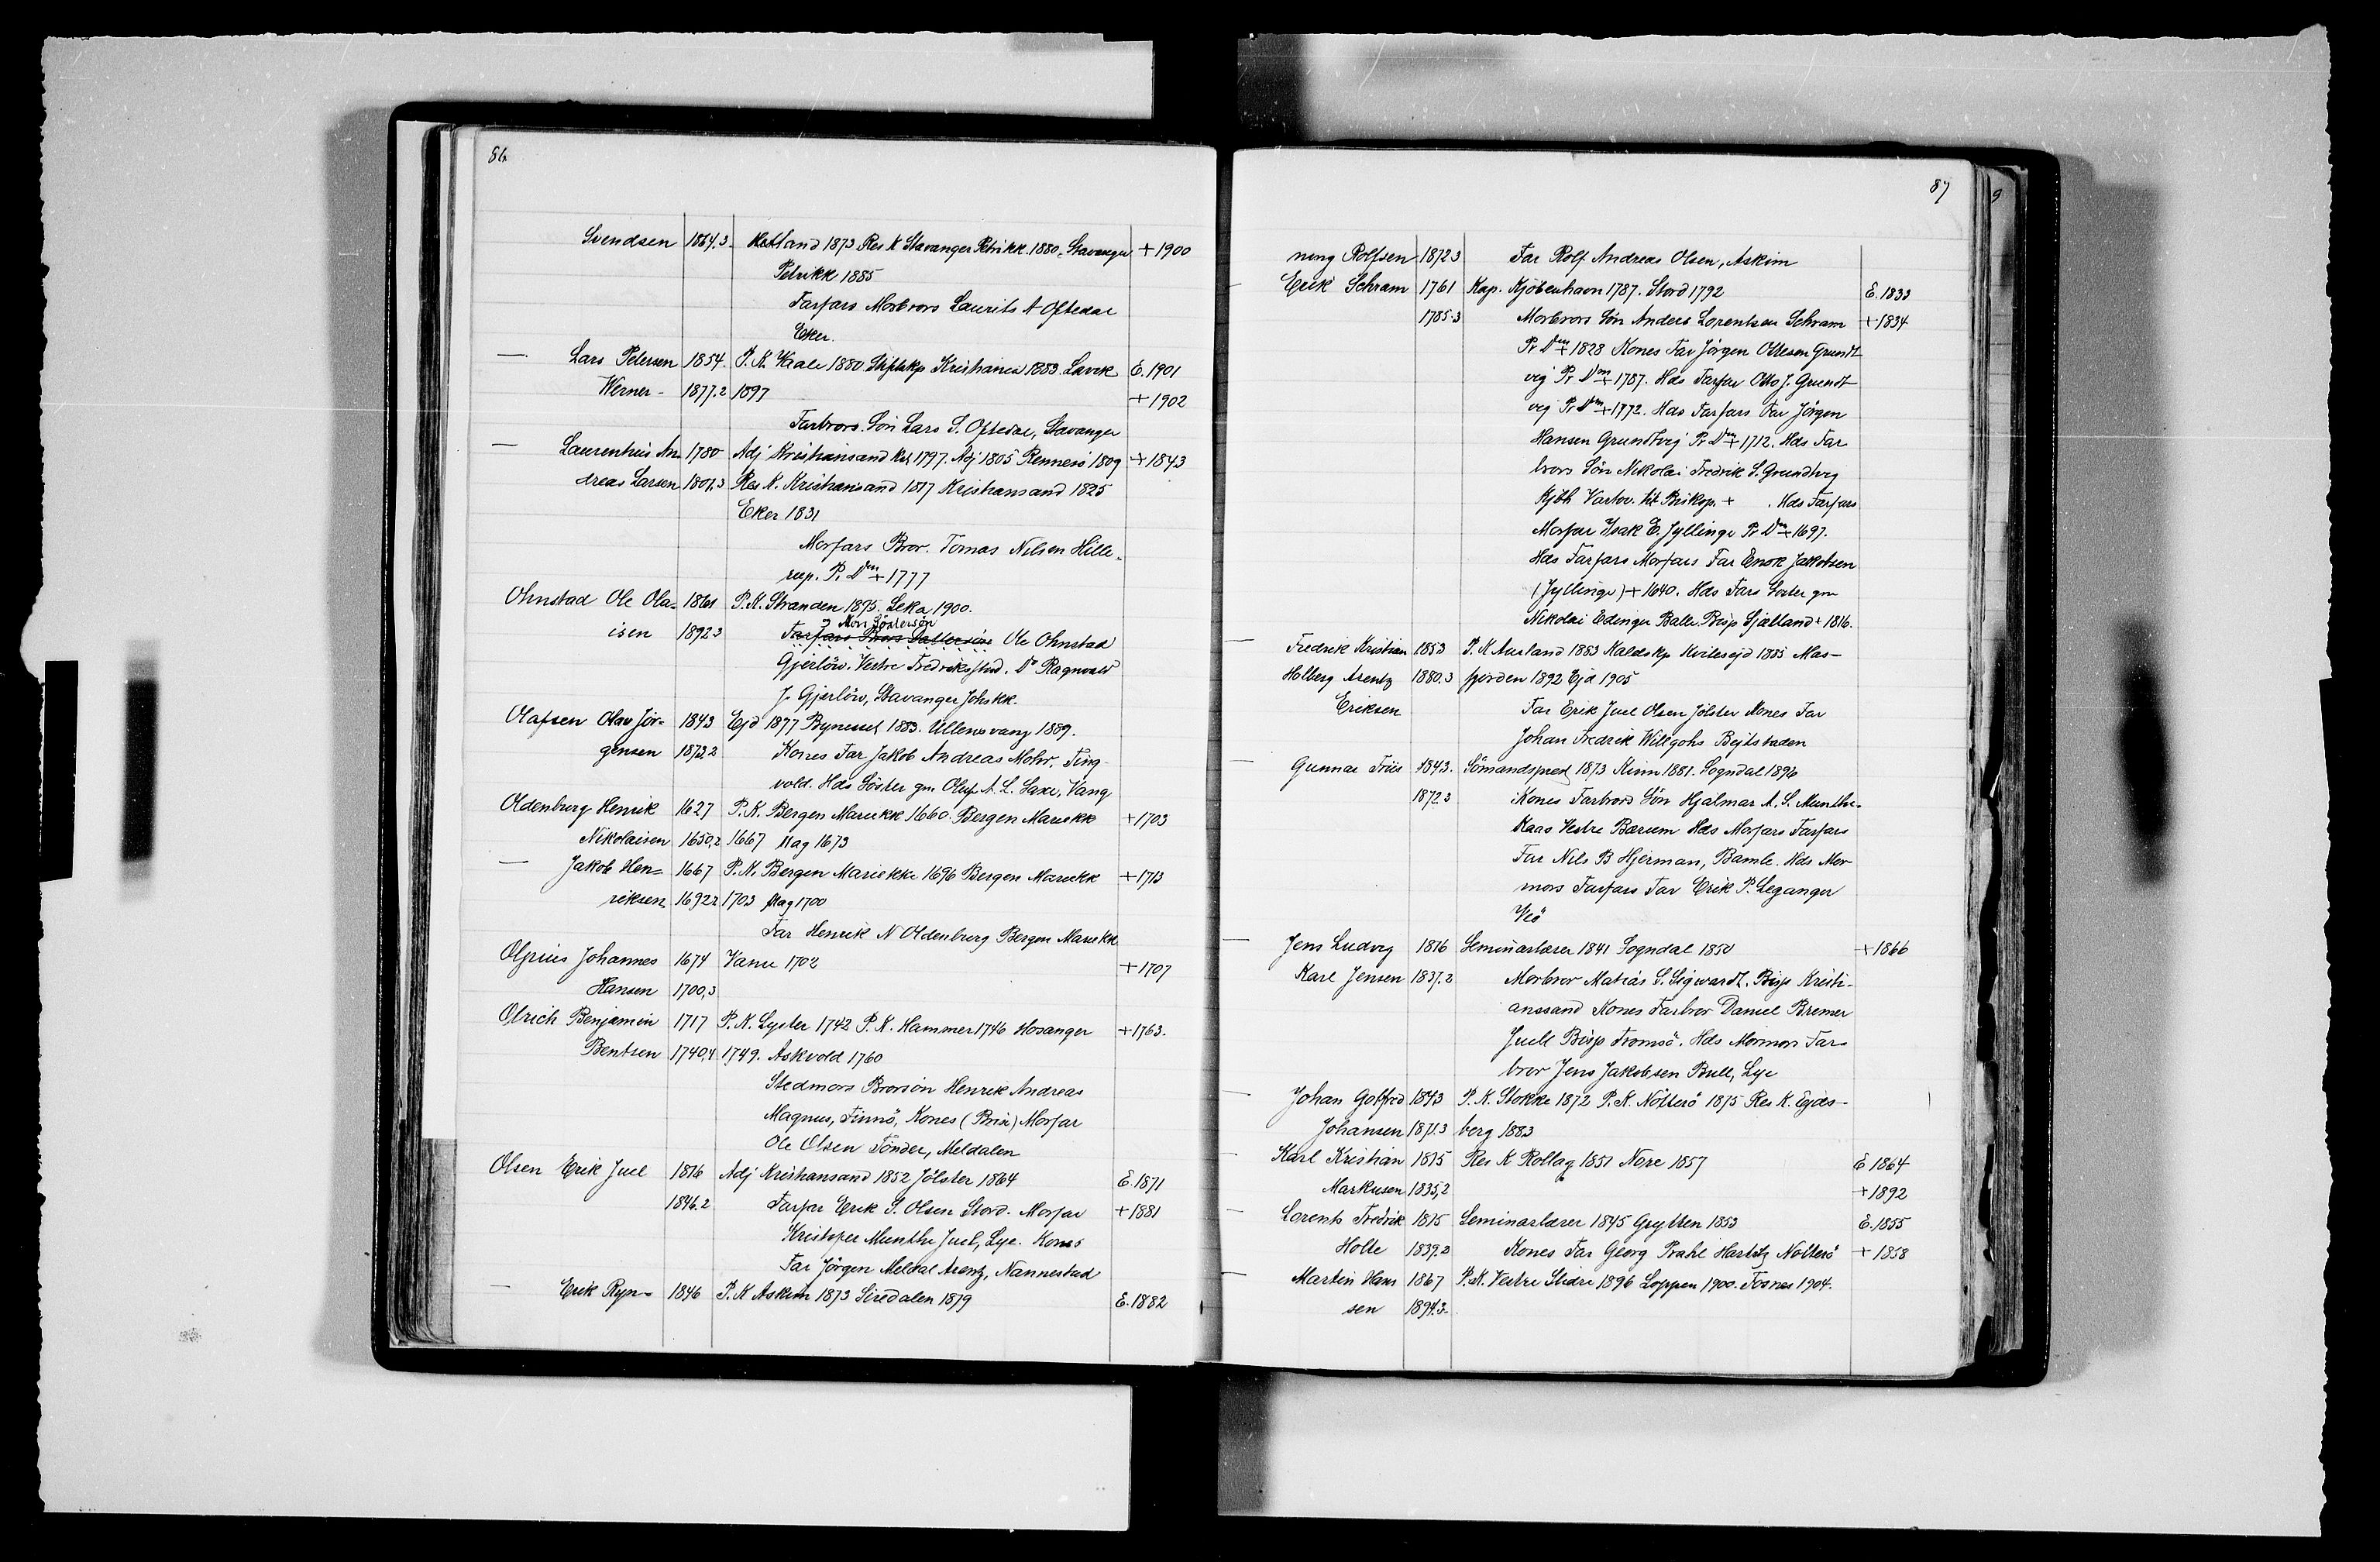 86
Svendsen 1864.3 Hetland 1873 Res K Stavanger Petrikk. 1880. Stavanger + 1900
Petrikk 1885
Farfars Morbrors Laurits A Oftedal
Eker.
— Lars Petersen 1854. P. K. Waale 1880 Stiftskp Kristiania 1883. Lavik E. 1901
Werner - 1877.2 1897 + 1902
Farbrors Søn Lars S. Oftedal, Stavanger
— Laurentius An- 1780 Adj Kristiansand 1797. Adj 1805 Rennesö 1809 + 1843
dreas Larsen 1801.3 Res K. Kristiansand 1817 Kristiansand 1825
Eker 1831
Morfars Bror. Tomas Nilsen Hille-
rup. Pr Dm + 1777
Ohnstad Ole Ola- 1861 P. K. Stranden 1895. Leka 1900.
Mors Sösterson
isen 1892.3 Farfars Brors Dattersön Ole Ohnstad
Gjerlöw. Vestre Fredrikstad. Do Ragnvald
J. Gjerlöw, Stavanger Johskk.
Olafsen Olav Jör- 1843 Ejd 1877 Bynesset 1883. Ullensvang 1889.
gensen 1872.2 Kones Far Jakob Andreas Mohr. Ting-
vold. Hds Söster gm Oluf A. L. Saxe, Vang
Oldenburg Henrik 1627 P. K. Bergen Mariekk 1660. Bergen Mariekk + 1703
Nikolaisen 1650,2 1667 Mag 1673
— Jakob Hen- 1667 P. K. Bergen Mariekke 1696 Bergen Mariekk + 1713
riksen 1692.2 1703 Mag 1700
Far Henrik N Oldenburg Bergen Mariekk
Olprius Johannes 1674 Vanu 1702 + 1707
Hansen 1700,3
Olrich Benjamin 1717 P. K. Lyster 1742 P. K. Hammer 1746 Hosanger + 1763.
Bentsen 1740,4 1749. Askvold 1760
Stedmors Brorsön Henrik Andreas
Magnus, Finnö, Kones (Brix) Morfar
Ole Olsen Tönder, Meldalen
Olsen Erik Juel 1816 Adj Kristiansand 1852 Jölster 1864 E. 1871
1846.2 Farfar Erik S. Olsen Stord. Morfar + 1881
Kristofer Munthe Juel, Lye. Kones
Far Jörgen Meldal Arentz, Nannestad
— Erik Ryn- 1846 P. K Askim 1873 Siredalen 1879 E. 1882
87
ning Rolfsen 1872.3 Far Rolf Andreas Olsen, Askim
— Erik Schram 1761 Kap. Kjöbenhavn 1787. Stord 1792 E. 1833
1785.3 Morbrors Sön Anders Lorentsen Schram + 1834
Pr Dm + 1828 Kones Far Jörgen Ottesen Grundt-
vig Pr Dm + 1787. Hds Farfar Otto J. Grundt-
vig Pr Dm + 1772. Hds Farfars Far Jörgen
Hansen Grundtvig Pr Dm + 1712. Hds Far
brors Sön Nikolai Fredrik S. Grundtvig
Kjbh Vartov. tit Biskop. + . Hds Farfars
Morfar Isak E. Jyllinge Pr Dm + 1697.
Hds Farfars Morfars Far Enok Jakobsen
(Jyllinge) + 1640. Hds Fars Söster gm
Nikolai Edinger Balle. Bisp Sjælland + 1816.
— Fredrik Kristian 1853 P. K Aurland 1883 Kaldskp Kvitesejd 1885 Mas-
Holberg Arentz 1880.3 fjorden 1892 Ejd 1905
Eriksen Far Erik Juel Olsen Jölster Kones Far
Johan Fredrik Willgohs Bejtstaden
— Gunnar Friis 1843. Sömandspræst 1873 Kinn 1881. Sogndal 1896
1872.3 Kones Farbrors Sön Hjalmar A. S. Munthe-
Kaas Vestre Bærum Hds Morfars Farfars
Far Nils B Hjerman, Bamle. Hds Mor
mors Farfars Far Erik P. Leganger
Veö
— Jens Ludvig 1816 Seminarlærer 1841 Sogndal 1850 + 1866
Karl Jensen 1837.2 Morbror Matias S. Sigwardt. Bisp Kristi-
anssand Kones Farbror Daniel Bremer
Juell Bisp Tromsö. Hds Mormors Far-
bror Jens Jakobsen Bull, Lye
— Johan Gotfred 1843 P. K. Stokke 1872 P. K. Nötterö 1875 Res K. Ejds-
Johansen 1871.3 berg 1883
— Karl Kristian 1815 Res K Rollag 1851 Nore 1857 E 1864
Markusen 1835,2 + 1892
— Lorents Fredrik 1815 Seminarlærer 1845 Grytten 1853 E. 1855
Holte 1839.2 Kones Far Georg Prahl Harbitz Nötterö + 1858
— Martin Hans 1867 P. K. Vestre Slidre 1896 Loppen 1900. Fosnes 1904.
sen 1894.3